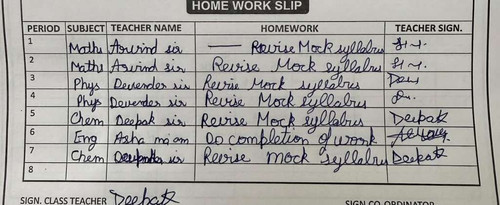 HOME WORK SLIP
PERIOD SUBJECT TEACHER NAME HOMEWORK TEACHER SIGN.
1 Maths Arvind sir — Revise Mock syllabus
2 Maths Arvind sir Revise Mock syllabus
3 Phys Devender sir Revise Mock syllabus
4 Phys Devender sir Revise Mock syllabus
5 Chem Deepak sir Revise Mock syllabus Deepak
6 Eng Asha ma'am Do completion of work
7 Chem sir Revise mock syllabus Deepak
8
SIGN. CLASS TEACHER Deepak SIGN CO-ORDINATOR